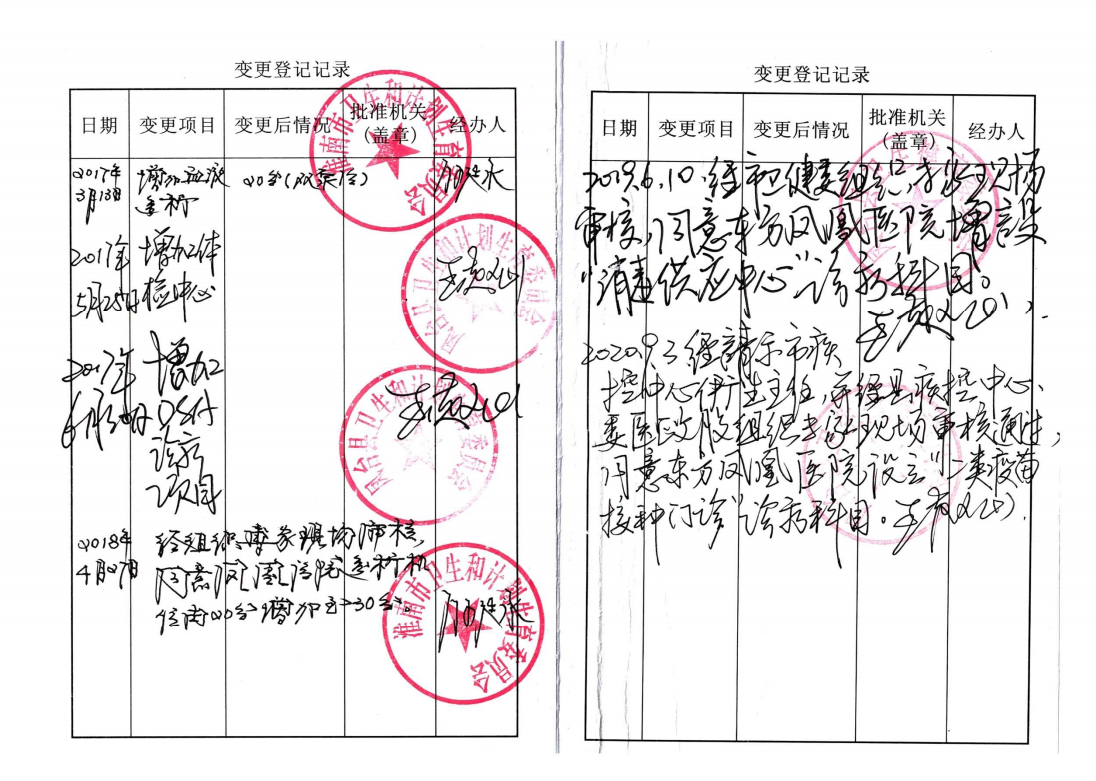 变更登记记录
日期 变更项目 变更后情况 批准机关(盖章) 经办人
2017年 增加血液 20台(双泵位)
3月13日 透析
淮南市卫生和计划生育委员会
2017年 增加体
5月25日 检中心
凤台县卫生和计划生育委员会
2017年 增加
6月 日 DSA
诊疗
项目
凤台县卫生和计划生育委员会
2018年 经组织专家现场审核,
4月27日 同意凤凰医院透析机
位由20台增加至30台。
淮南市卫生和计划生育委员会
变更登记记录
日期 变更项目 变更后情况 批准机关(盖章) 经办人
2019.6.10.经市卫健 组织专家现场
审核,同意东方凤凰医院增设
"消毒供应中心"诊疗科目。
2020.9.3经请示市疾
控中心 主任,并经县疾控中心、
委医政股组织专家现场审核通过,
同意东方凤凰医院设立"二类疫苗
接种门诊"诊疗科目。